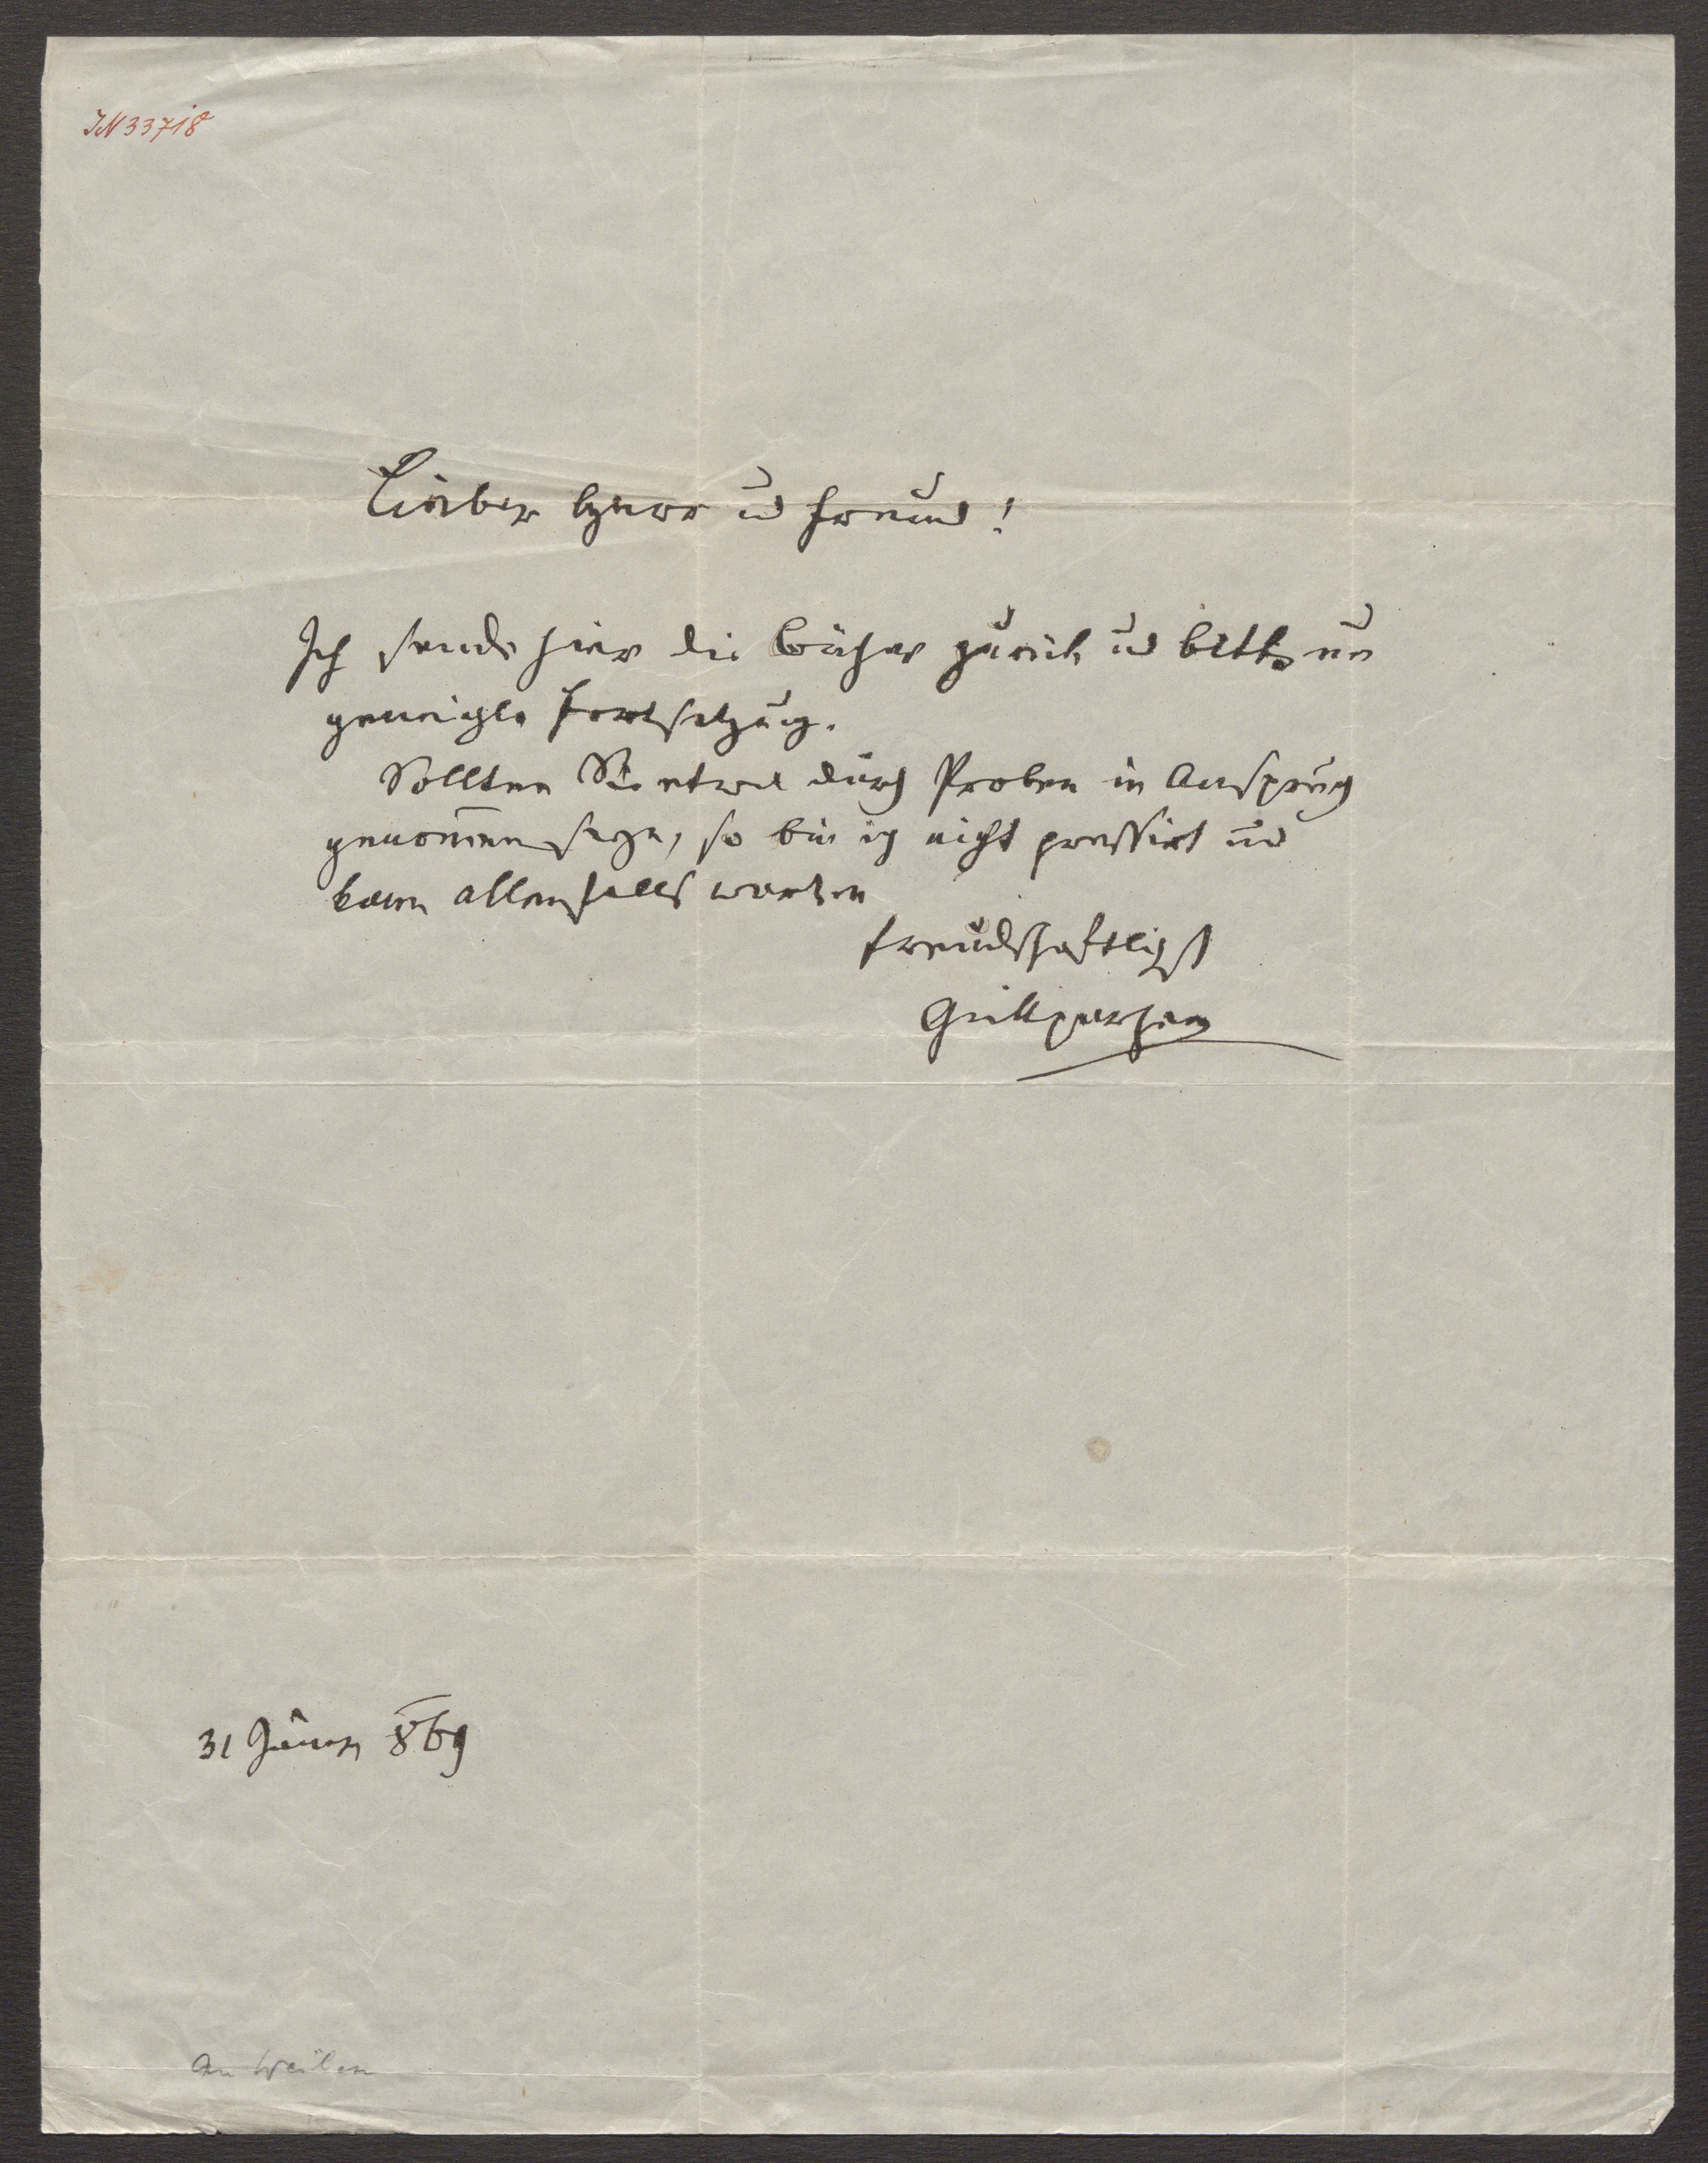 IN 33718
Lieber Herr und Freund!
Ich sende hier die Bücher zurück und bitte um
geneigte Fortsetzung.
Sollten Sie etwa durch Proben in Anspruch
genommen seyn, so bin ich nicht pressirt und
kann allenfalls warten
freundschaftlichst
Grillparzer
31 Jänner 869
An Weilen